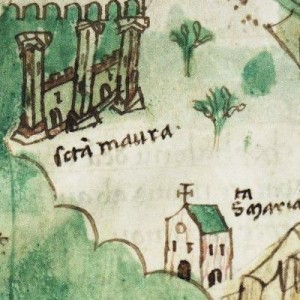 sctā maura
ta
S maria